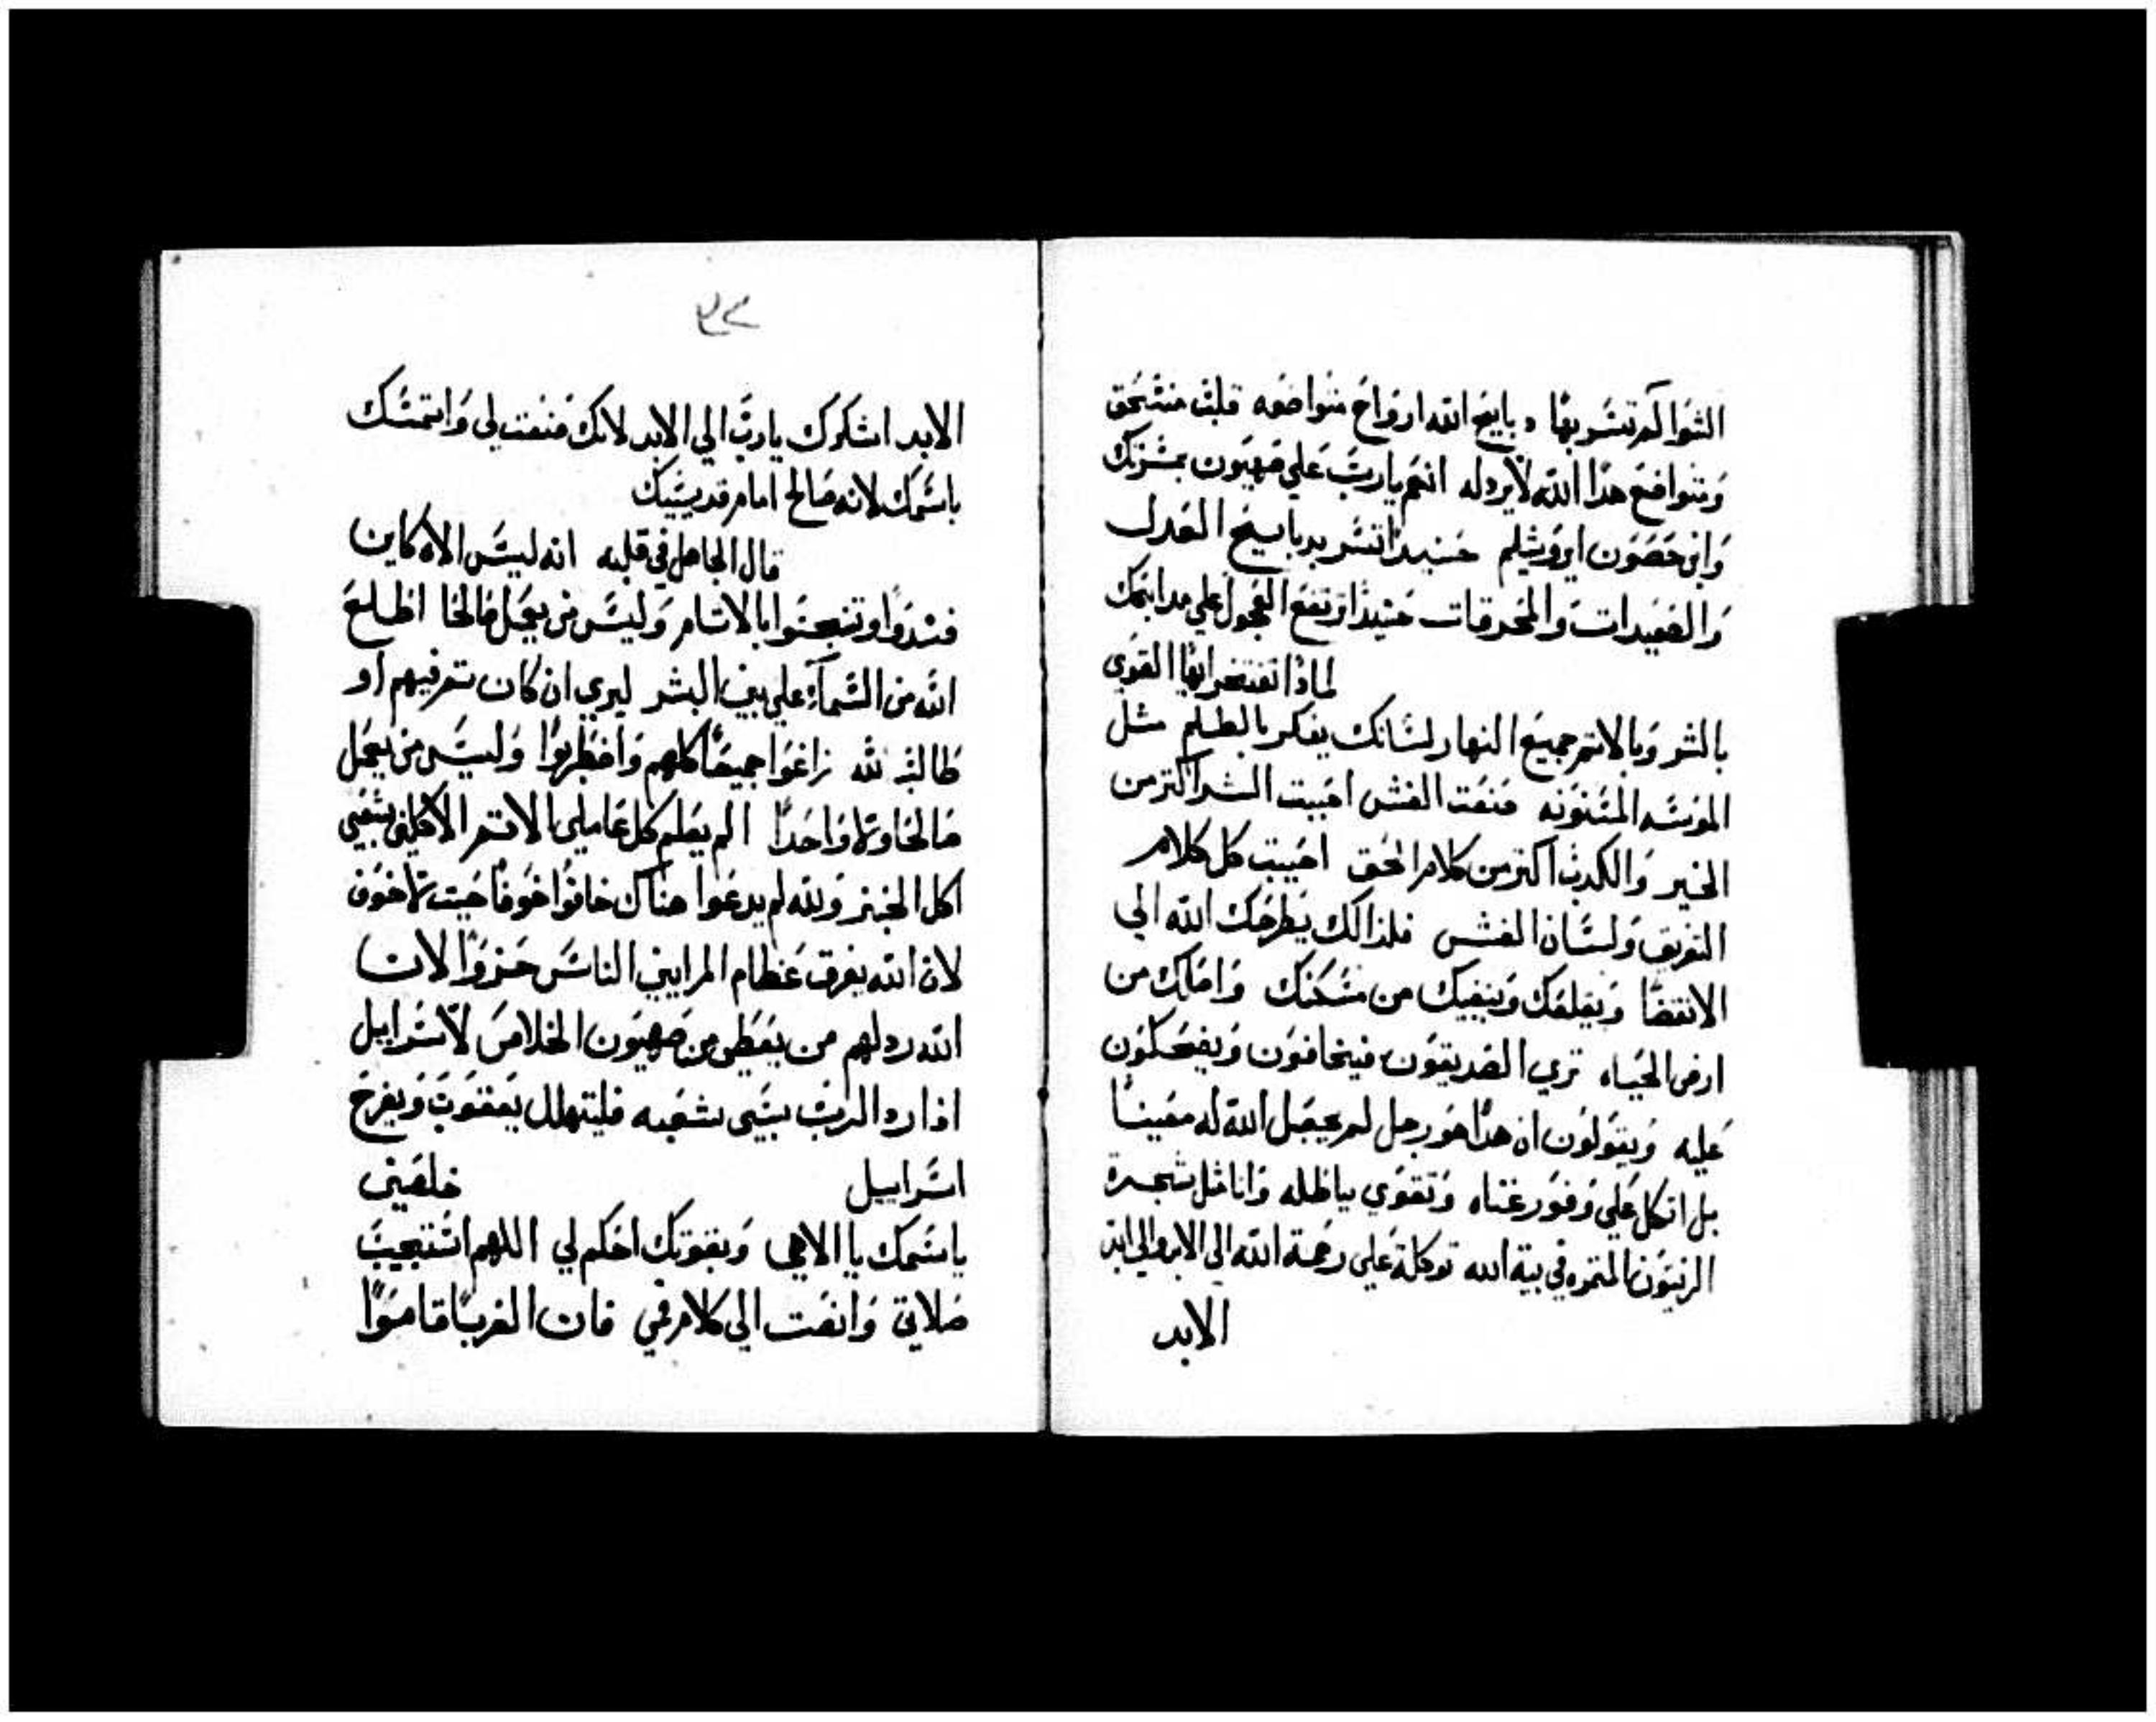 الثوالم تسر بها دبايح الله ارواح متواضعه قلب منسحق
ومتواضع هدا الله لا يردله انعم يارب علي صهيون بمسرتك
وابن حصون ايروشليم حنيدا تسر بدبايح العدل
والصعيدات والمحرقات حنيدا ترتفع العجول علي مدابحك
لمادا تفتخر ايها القوي
بالشر وبالاتم جميع النهار لسانك يفكر بالظلم مثل
الموسه المسنونه صنعت الغش احببت الشر اكتر من
الخير والكدب اكتر من كلام الحق احببت كل كلام
التغريق ولسان الغش فلذالك يطرحك الله الي
الانقضا ويقلعك وينفيك من مسكنك واصلك من
ارض الحياه تري الصديقون فيخافون ويضحكون
عليه ويقولون ان هدا هو رجل لم يجعل الله له معينا
بل اتكل علي وفور غناه وتقوي بباطله وانا مثل شجرة
الزيتون المتمره في بيت الله توكلة علي رحمة الله الي الابد والي ابد
الابد
٥٣
الابد اشكرك يارب الي الابد لانك صنعت لي واتمسك
باسمك لانه صالح امام قديسيك
قال الجاهل في قلبه انه ليس الاه كاين
فسدوا وتنجسوا بالاتام وليس من يعمل صالحا اطلع
الله من السماء علي بني البشر ليري ان كان تم فيهم او
طالب لله زاغوا جميعا كلهم واضطربوا وليس من يعمل
صالحا ولا واحدا الم يعلم كل عاملي الاتم الاكلين شعبي
اكل الخبز ولله لم يدعوا هناك خافوا خوفا حيت لا خوف
لان الله يفرق عظام المرايين الناس خزوا لان
الله ردلهم من يعطي من صهيون الخلاص لاسراييل
ادا رد الرب سبي شعبه فليتهلل يعقوب ويفرح
اسراييل خلصني
باسمك يا الاهي وبقوتك احكم لي اللهم استجيب
صلاتي وانصت الي كلام في فان الغربا قاموا